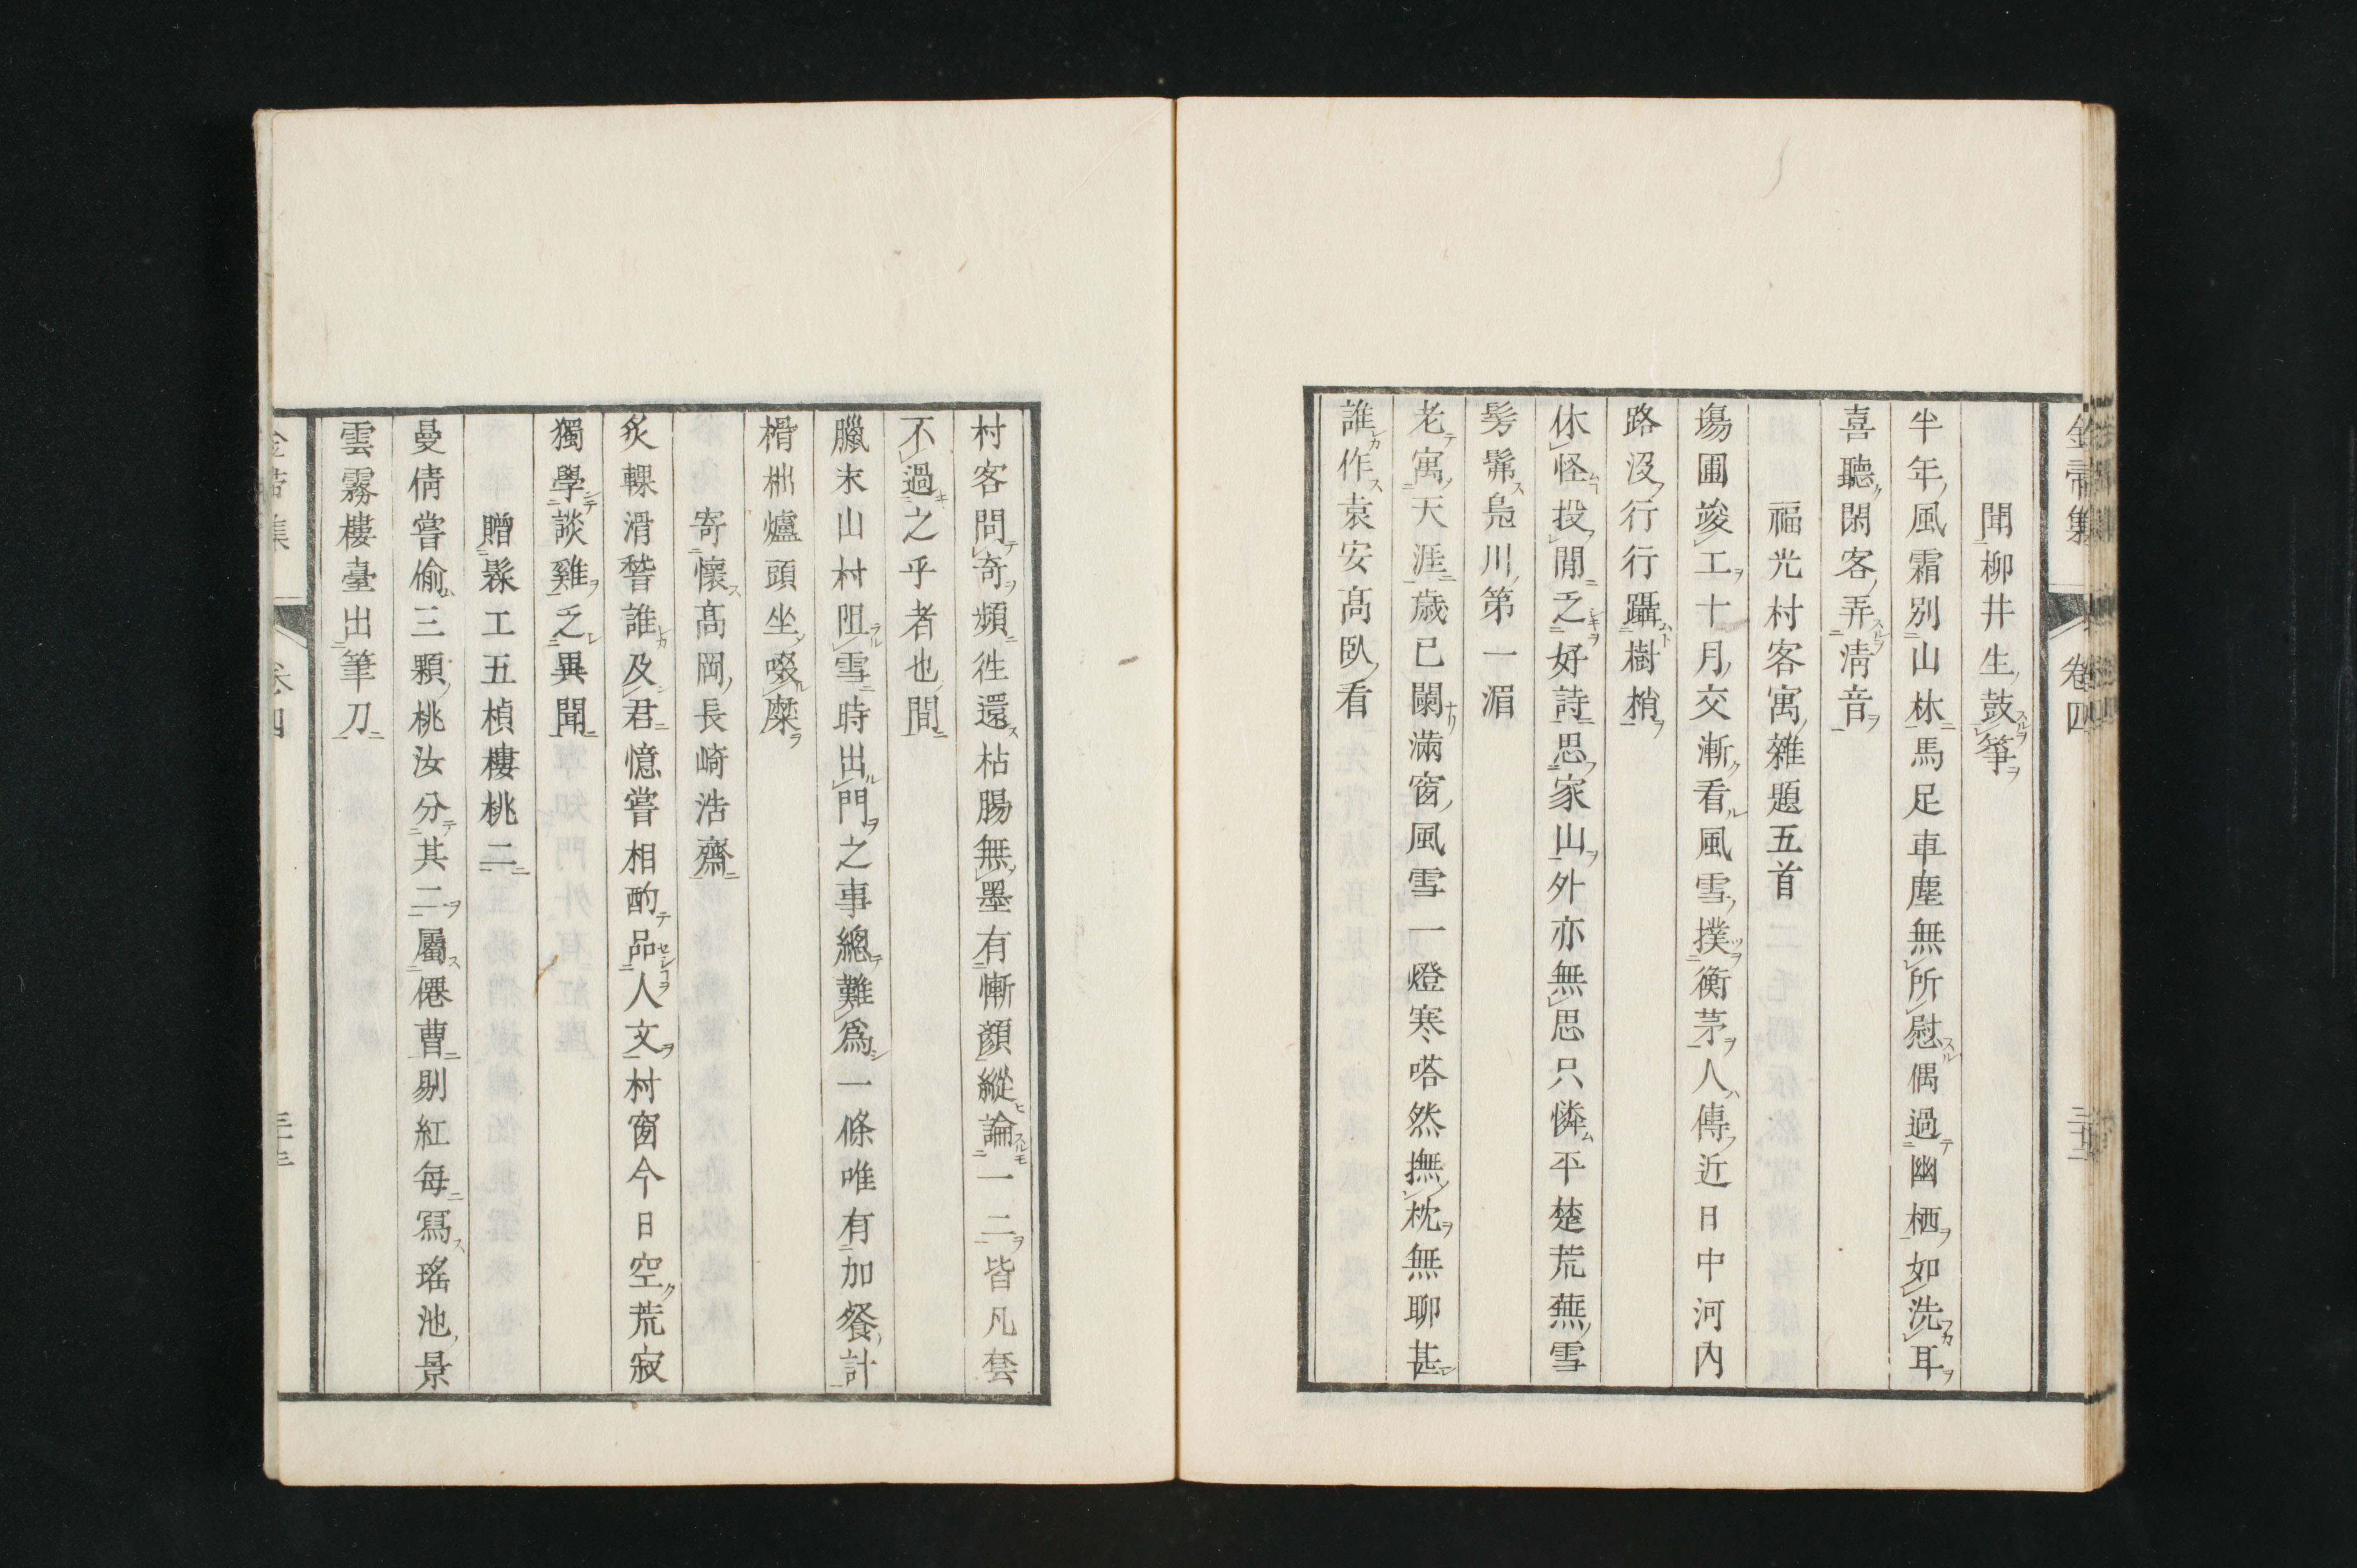 聞柳井生鼓箏
半年風霜別山林馬足車塵無所慰偶過幽栖如洗耳
喜聽閑客弄淸音
福光村客寓雜題五首
塲圃竣工十月交漸看風雪撲衡茅人傳近日中河內
路沒行行躡樹梢
休怪投閒乏好詩思家山外亦無思只憐平楚荒蕪雪
髣髴鳧川第一湄
老寓天涯歲已闌滿窗風雪一燈寒嗒然撫枕無聊甚
誰作袁安髙臥看
村客問奇頻徃還枯腸無墨有慚顔縱論一二皆凡套
不過之乎者也間
臘末山村阻雪時出門之事總難爲一條唯有加餐計
榾柮爐頭坐啜糜
寄懷髙岡長崎浩齋
炙輠滑稽誰及君憶嘗相酌品人文村窗今日空荒寂
獨學談雞乏異聞
贈髹工五楨樓桃二
曼倩嘗偷三顆桃汝分其二屬僊曹剔紅每寫瑤池景
雲霧樓臺出筆刀
卷四